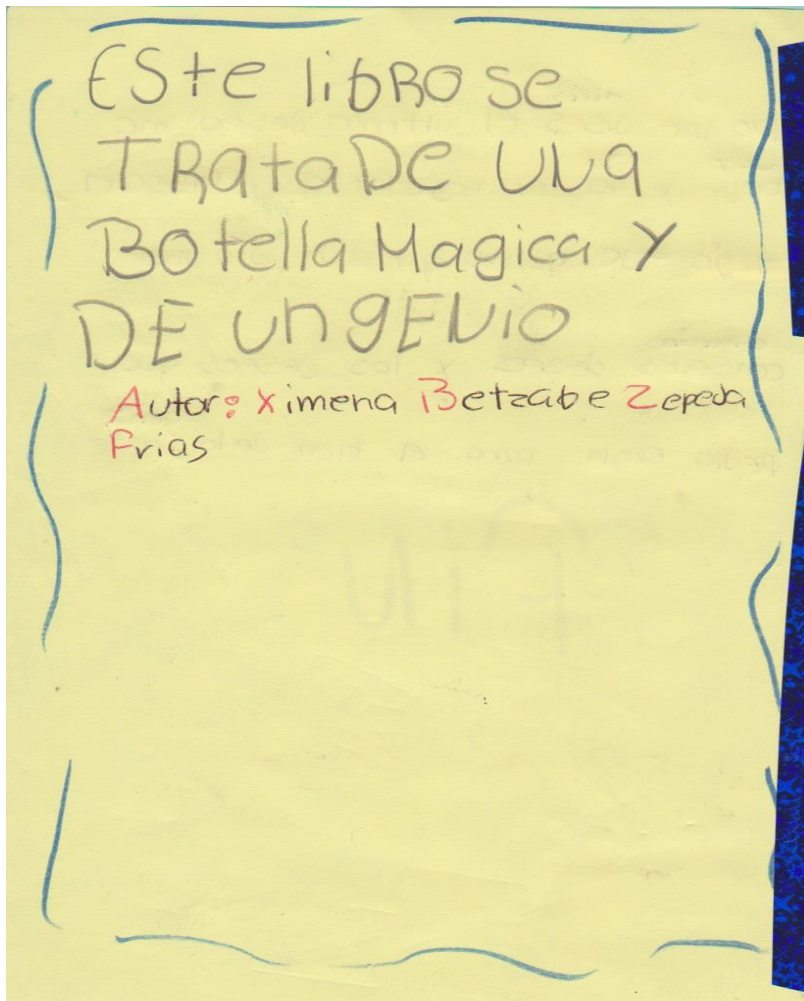 ESte libRO se
TRata DE UNa
BOtella Magica Y
DE UngENiO
Autor: Ximena Betzabe Zepeda
Frias